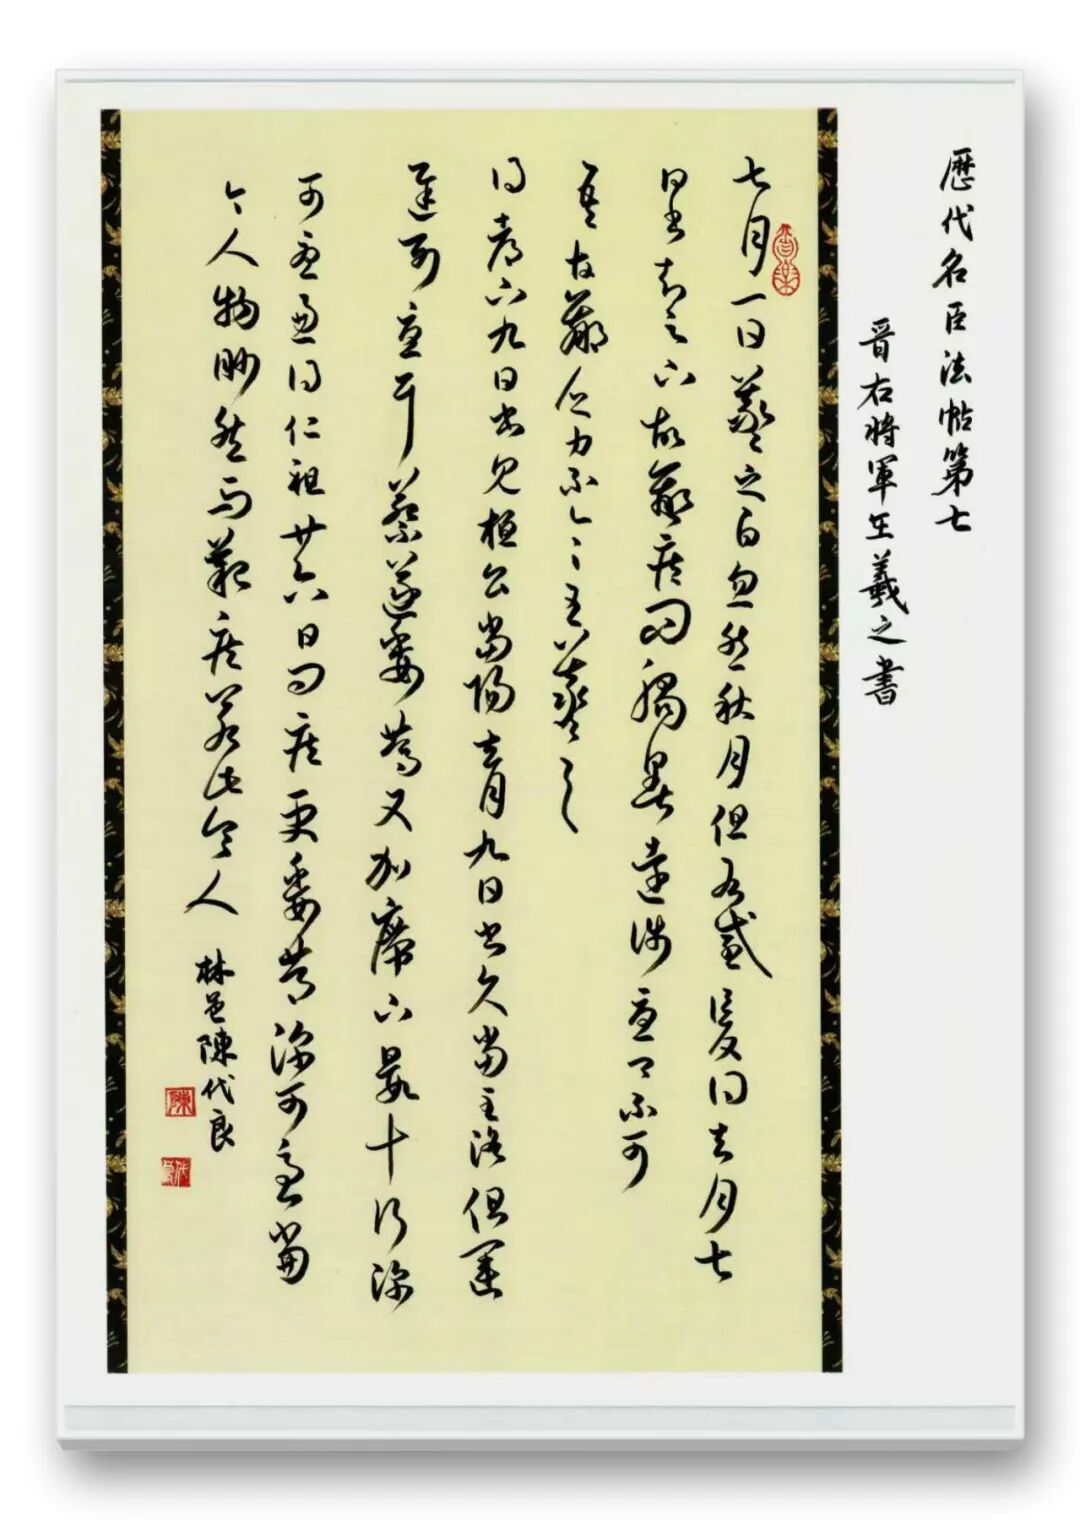 歷代名臣法帖第七
晉右將軍王羲之書
七月一日羲之白忽然秋月但有感信反得去月七
日書知足下故羸疾問觸暑遠涉憂卿不可
言吾故羸乏力不一一王羲之
得都下九日書見桓公當陽去月九日書久當至洛但運
遲可憂耳蔡公遂委篤又加廗下日數十行深
可憂慮得仁祖廿六日問疾更委篤深可憂當
今人物眇然而艱疾若此令人
林邑陳代良
陳